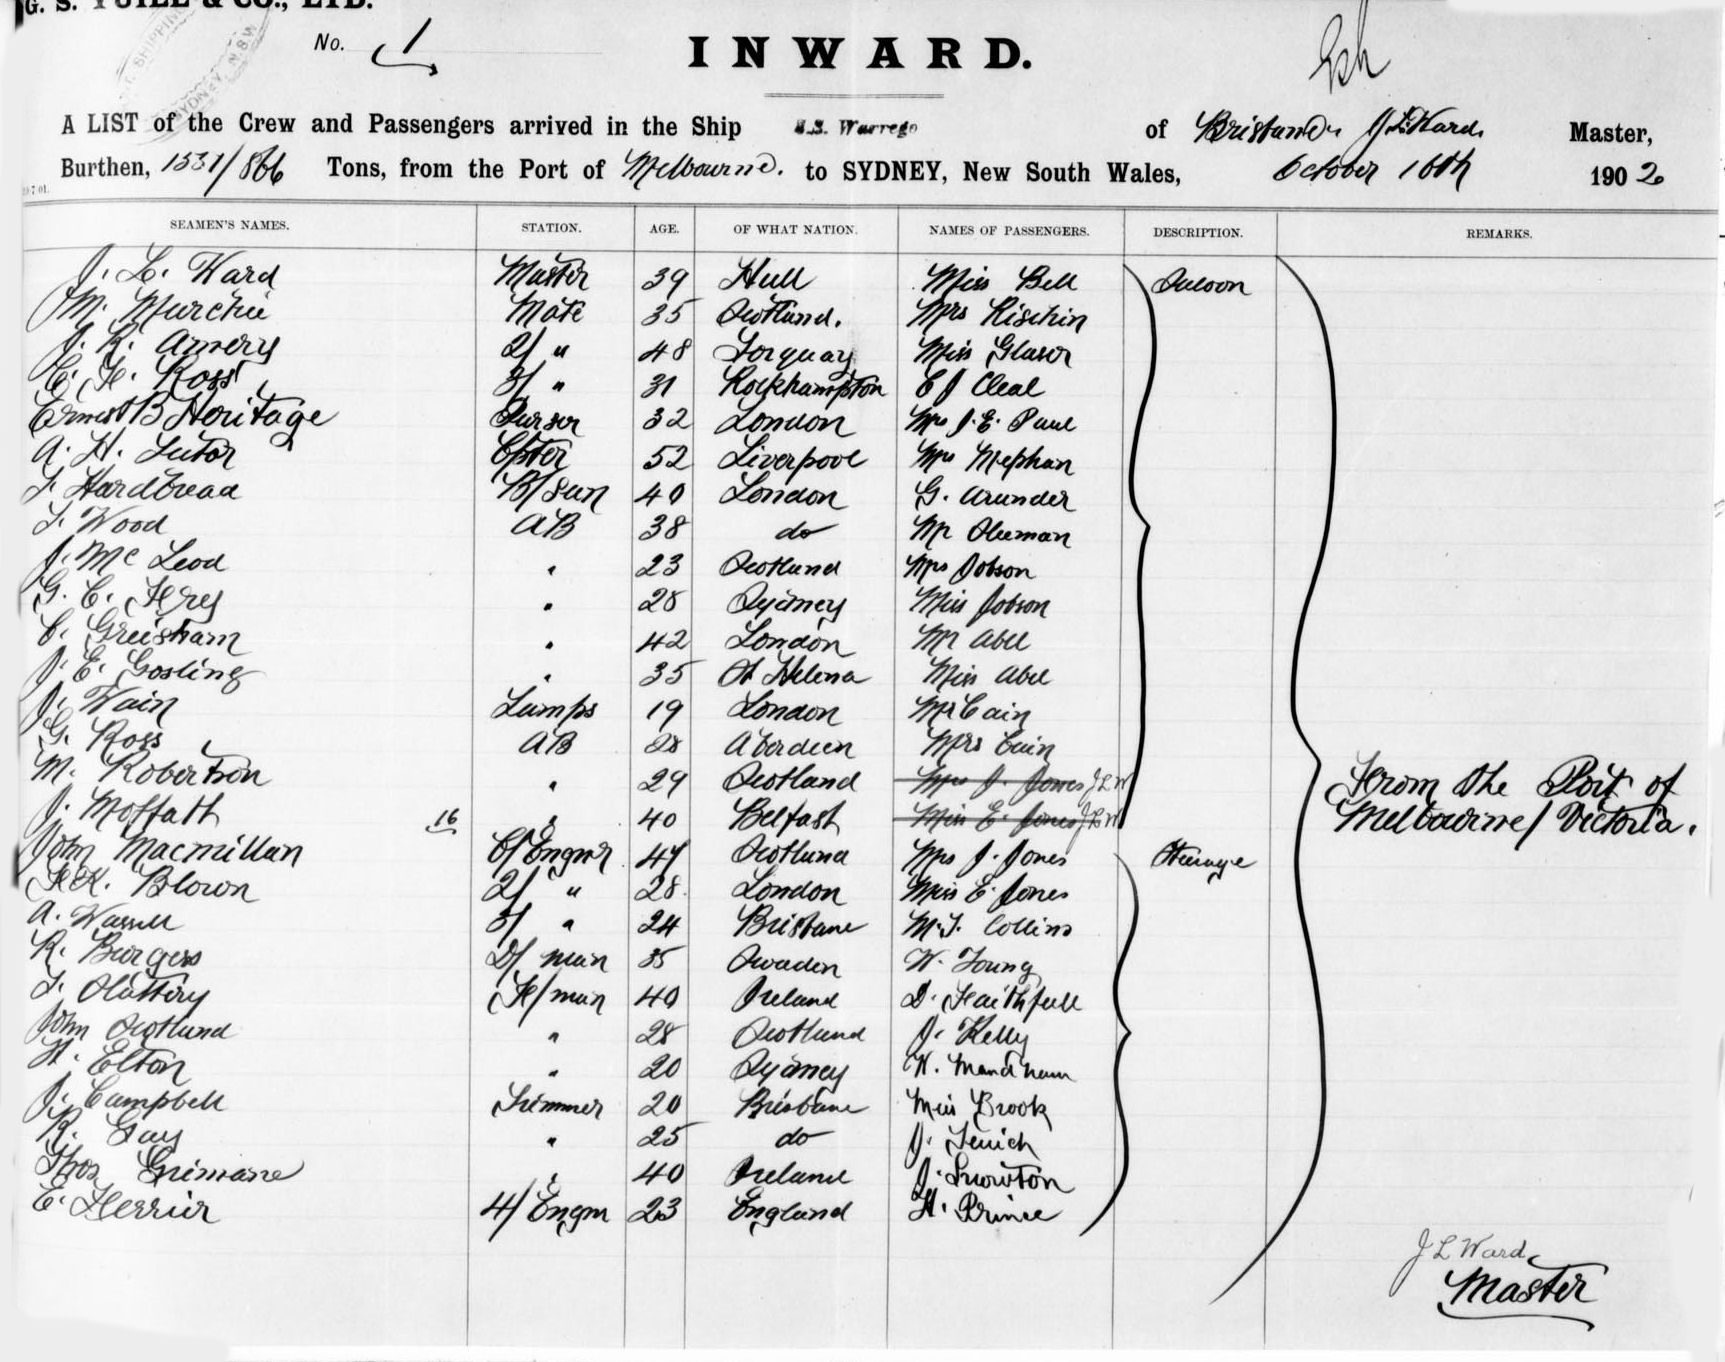 G. S. YUILL & CO., LTD.
No. 1
INWARD.
A LIST of the Crew and Passengers arrived in the Ship S.S. Warrego of Brisbane J. L. Ward Master,
Burthen, 1531/866 Tons, from the Port of Melbourne. to SYDNEY, New South Wales, October 16th 1902
SEAMEN'S NAMES. STATION. AGE. OF WHAT NATION. NAMES OF PASSENGERS. DESCRIPTION. REMARKS.
J. L. Ward Master 39 Hull Miss Bell Saloon
M. Murchie Mate 35 Scotland. Mrs Rischin
J. R. Amery 2/ " 48 Torquay Miss Glaser
C. H. Ross 3/ " 31 Rockhampton E J Cleal
Ernest B Heritage Purser 32 London Mrs J. E. Paul
A. H. Tutor C/pter 52 Liverpool Mrs Mephan
T. Hardbread B/sun 40 London G. Arunder
T. Wood AB 38 do Mr
J. Mc Leod " 23 Scotland Mrs Jobson
G. C. Frey " 28 Sydney Miss Jobson
C. Greisham " 42 London Mr Abel
J. E. Gosling " 35 St Helena Miss Abel
J. Wain Lamps 19 London Mr Cain
G. Ross AB 28 Aberdeen Mrs Cain
M. Robertson " 29 Scotland Mrs J. Jones J L W From the Port of
J. Moffatt 16 " 40 Belfast Miss E. Jones J L W Melbourne/ Victoria.
John Macmillan C/ Engnr 47 Scotland Mrs J. Jones Steerage
F. K. Blown 2/ " 28 London Miss E. Jones
A. 3/ " 24 Brisbane M. T. Collins
R. Burgess D/ man 35 Sweden W. Young
T. Slattery F/ man 40 Ireland D. Faithfull
John Scotland " 28 Scotland J. Kelly
H. Elton " 20 Sydney W.
J. Campbell Trimmer 20 Brisbane Miss Brook
R. Gay " 25 do J.
Thos " 40 Ireland J.
E. Ferrier 4/ Engnr 23 England H. Prince
J L Ward
Master